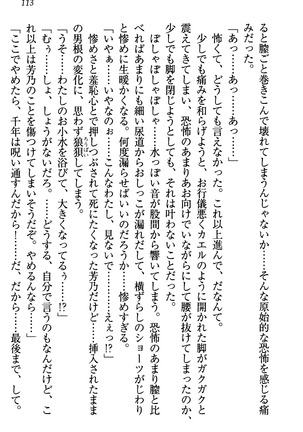 113
ると膣ごと巻きこんで壊れてしまうんじゃないか……そんな原始的な恐怖を感じる痛
みだった。
「あっ……あっ……」
怖くて、どうしても言えなかった。これ以上進んで、だなんて。
少しでも痛みを和らげようと、お行儀悪くカエルのように開かれた脚がガクガクと
震えてきてしまい、恐怖のあまりあお向けでいながらにして腰が抜けてしまったのか、
少しでも脚を閉じようとしても、それは叶わないことだった。
ぽしゃぽしゃぽしゃ……水っぽい音が股間から響いてしまう。恐怖のあまり膣と比
べればあまりにも細い尿道からおしっこが漏れだして、横ずらしのショーツがじわり
と生暖かくなる。何度漏らせばいいのだろうか……惨めすぎる。
「いやぁ……なのっ……こんなわたし、見ないで……えぇっ!?」
惨めさと羞恥心とで押しつぶされて死にたくなった芳乃だけど……挿入されたまま
の男根の変化に、思わず狼狽してしまう。
「うそ……わたしのお小水を浴びて、大きくなってるぅ……!?」
「むぅ……しょ、しょうがないだろ。……どうする、自分で言うのもなんだけど、こ
れ以上は芳乃のことを傷つけてしまいそうだぞ。やめるんなら……」
「ここでやめたら、千年は呪い通すんだから……だ、だから……最後まで、して。